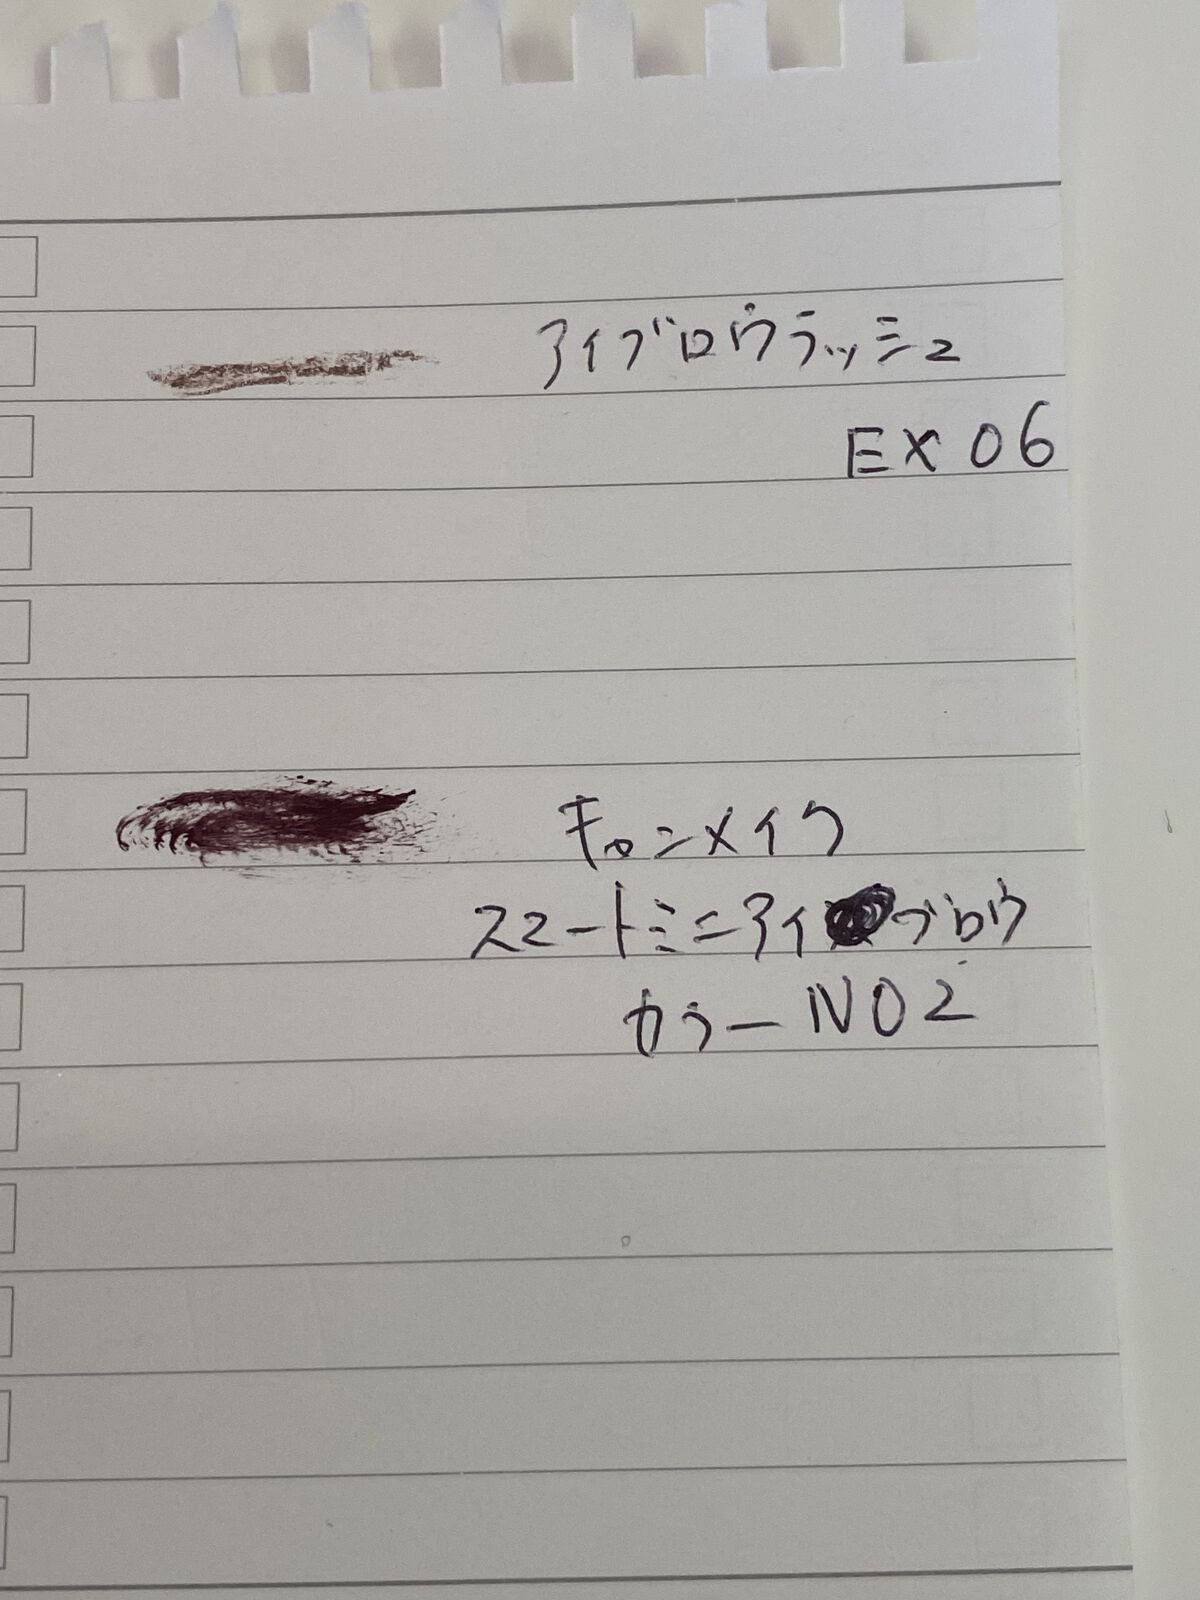 アイブロウラッシュ
EX 06
キャンメイク
スマートミニアイブロウ
カラーN02